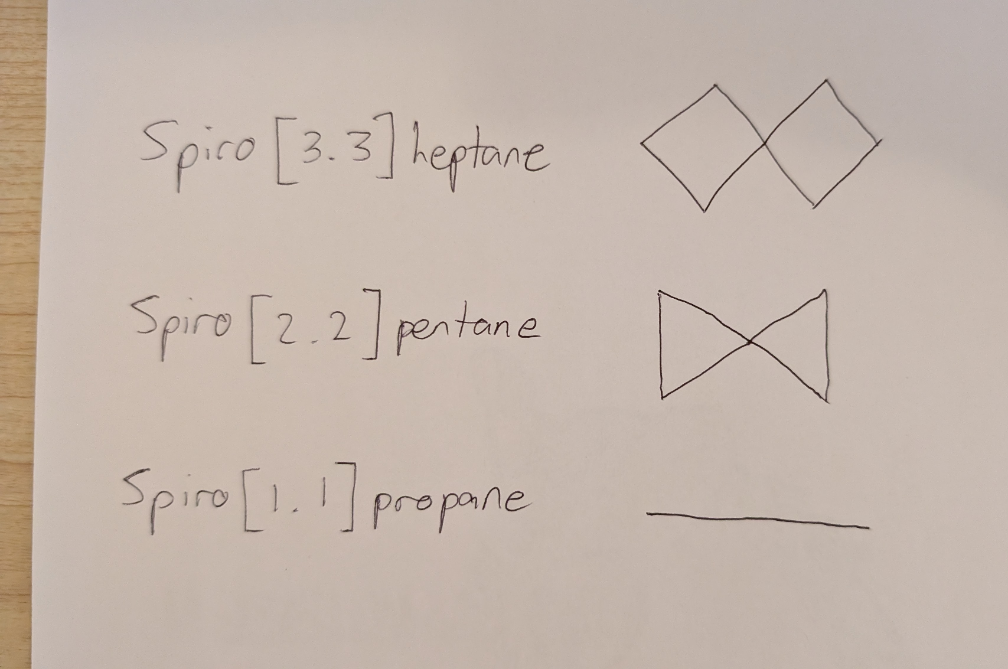 Spiro [3.3] heptane
Spiro [2.2] pentane
Spiro [1.1] propane